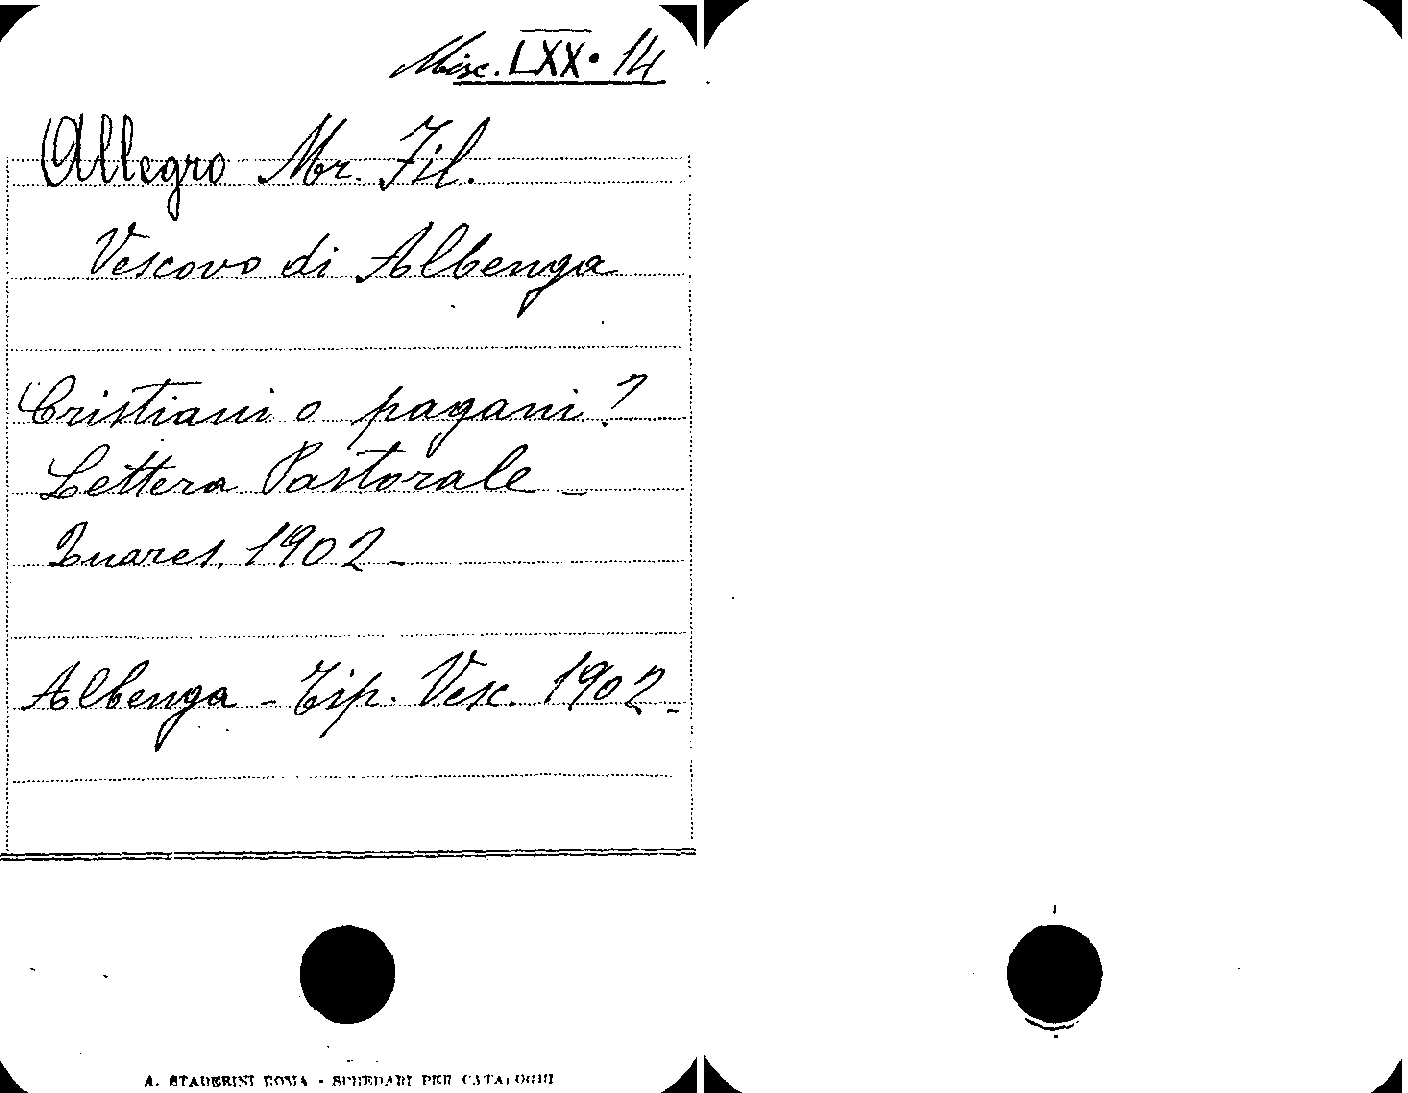 Misc. LXX. 14
Allegro Mr. Fil.
Vescovo di Albenga
Cristiani o pagani?
Lettera Pastorale -
Quares. 1902 -
Albenga - Tip. Vesc. 1902 -
A. STADERINI ROMA - SCHEDARI PER CATALOGHI